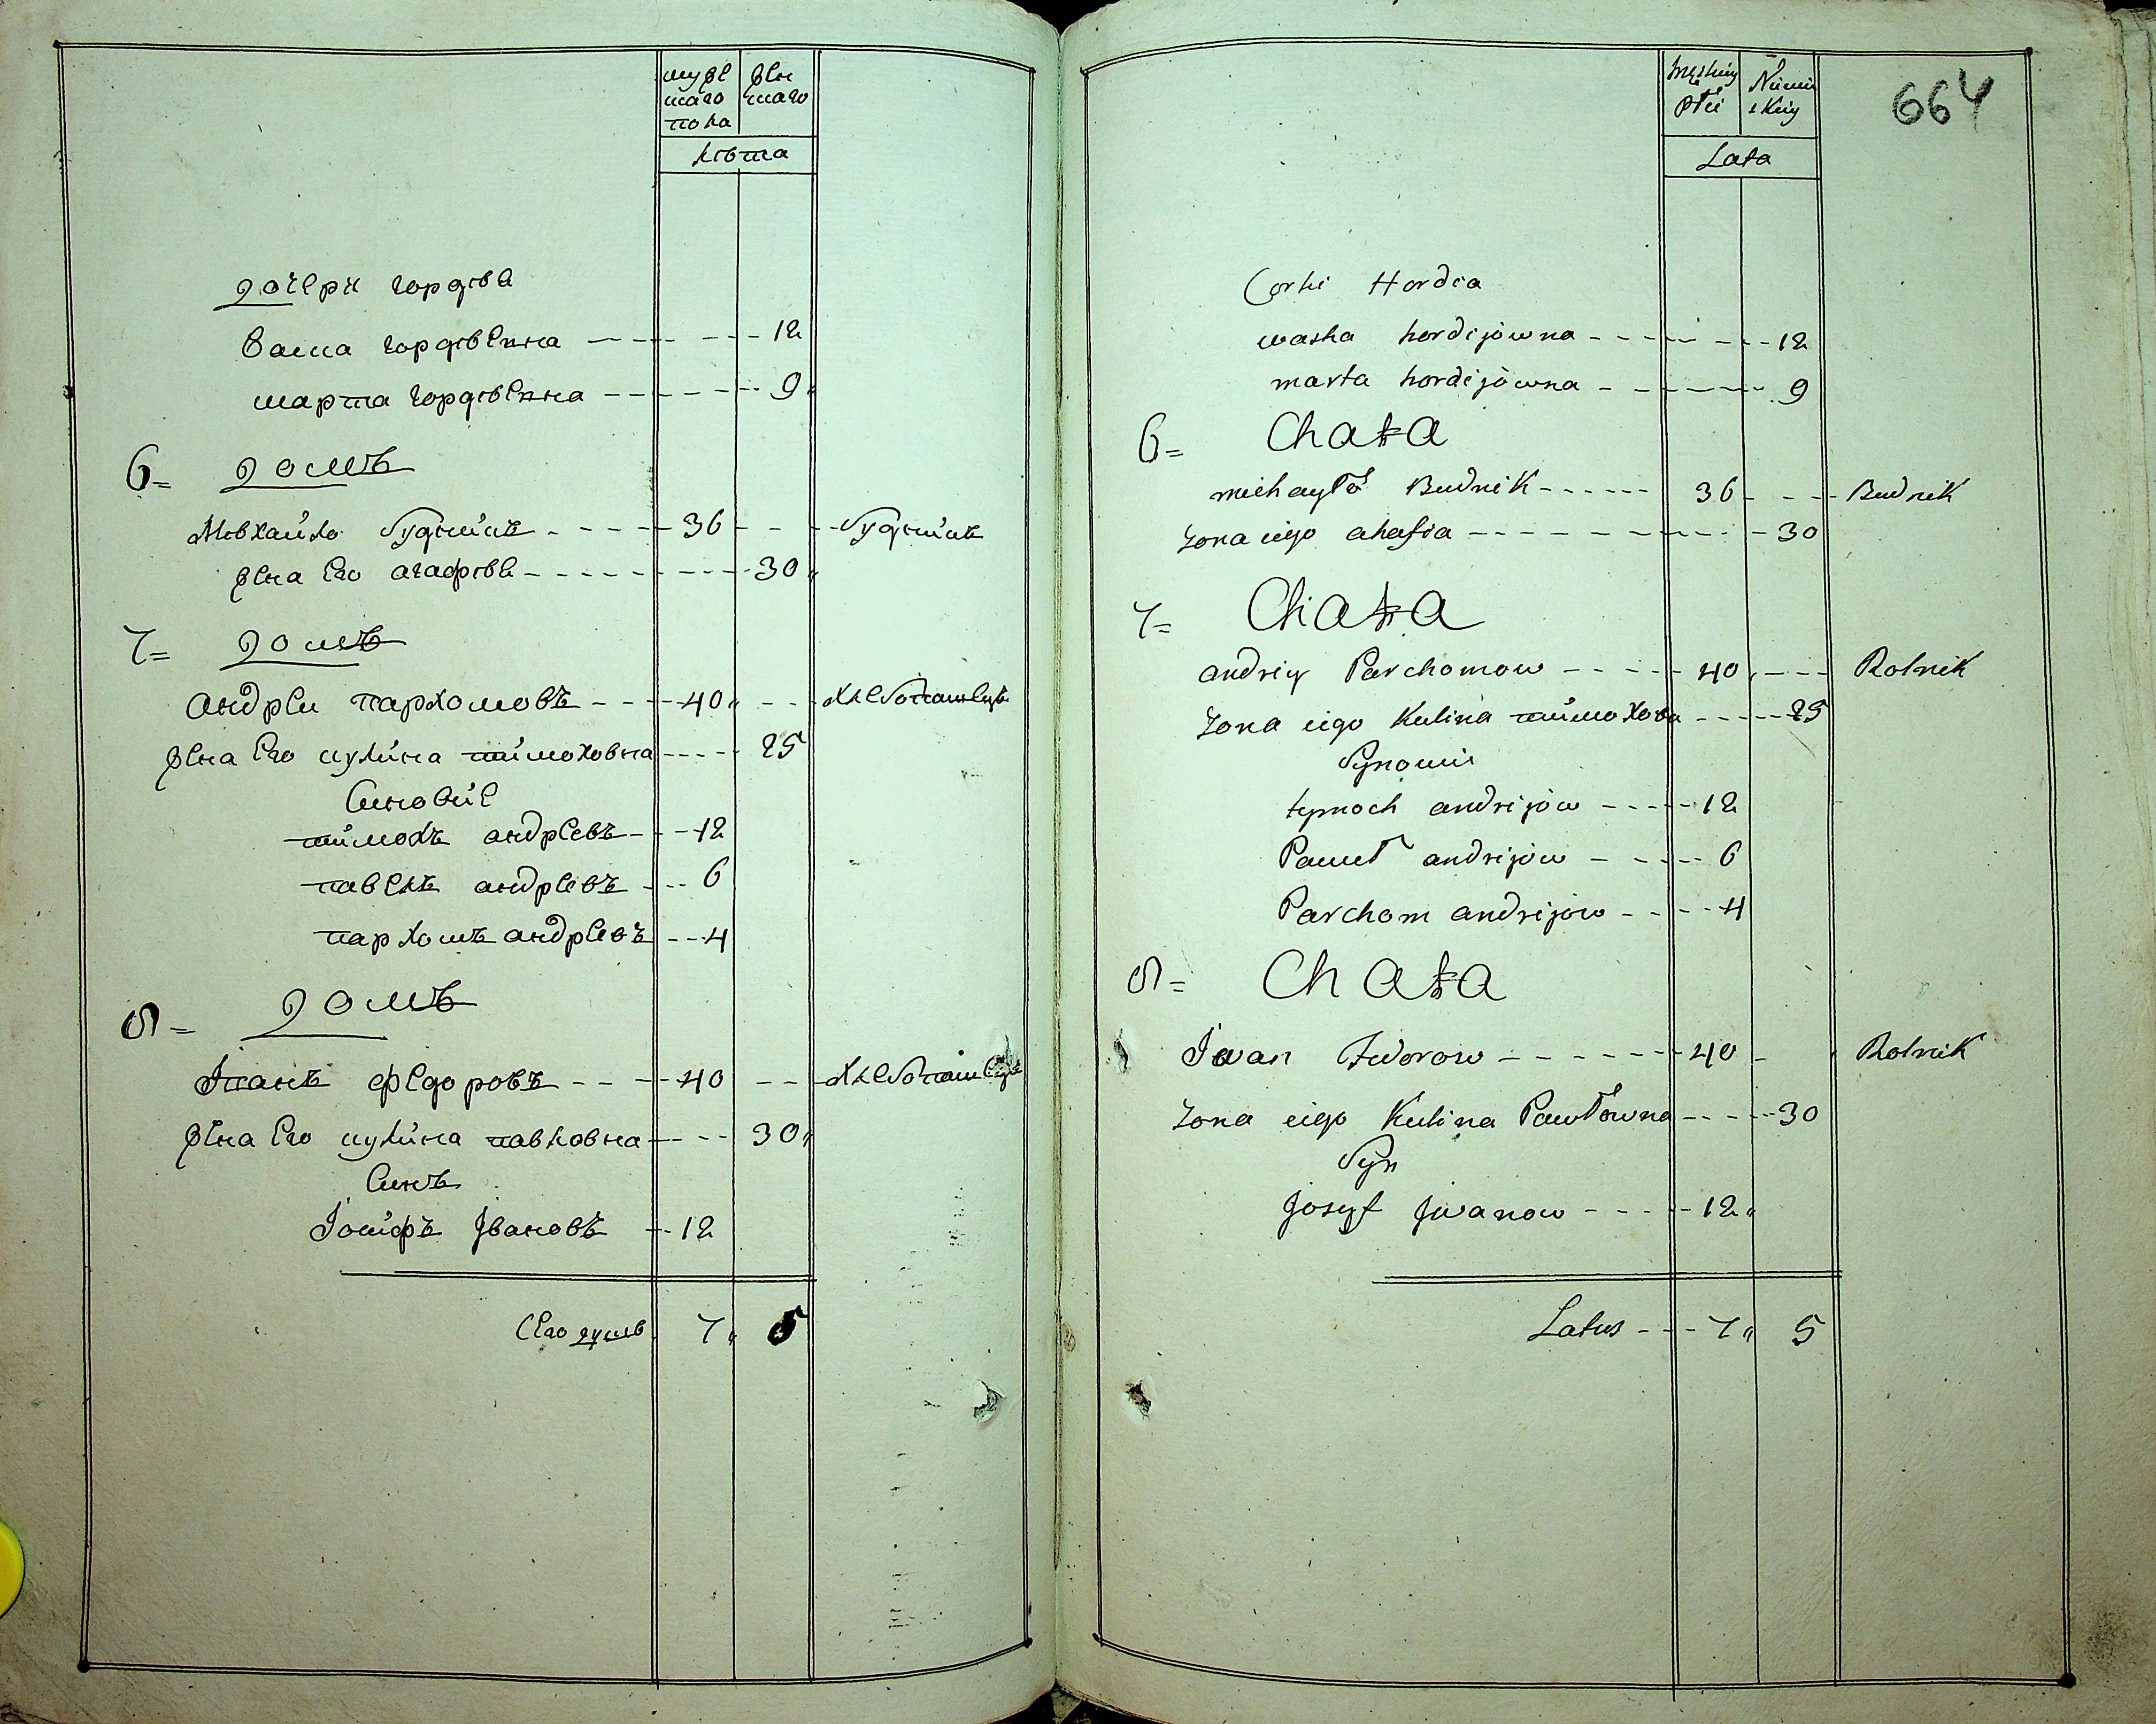 мужескаго пола
женскаго
лѣта
дочери гордѣѣ
Васка гордѣевна 12
марта гордѣевна 9
6= домъ
Мѣхайло Будникъ 36 Будникъ
жена Его агафѣѣ 30
7= домъ
андреи пархомовъ 40 хлебопашецъ
жена Его кулина тимоховна 25
Синовие
тимохъ андреевъ 12
павелъ андреевъ 6
пархомъ андреевъ 4
8= домъ
Іванъ федоровъ 40 хлебопашецъ
жена Его кулина павловна 30
Синъ
Іосифъ Івановъ 12
7 5
664
Męskiey Płci
Niewieskiey
Lata
Corki Hordia
waska hordijówna 12
marta hordijówna 9
6= Chata
michayło Budnik 36 Budnik
żona iego ahafia 30
7= Chata
andriy Parchomow 40 Rolnik
żona iego Kulina тимохова 25
Synowie
tymoch andrijów 12
Paweł andrijów 6
Parchom andrijów 4
8= Chata
Iwan Fedorow 40 Rolnik
żona iego Kulina Pawłowna 30
Syn
Josyf Jwanow 12
Latus 7 5